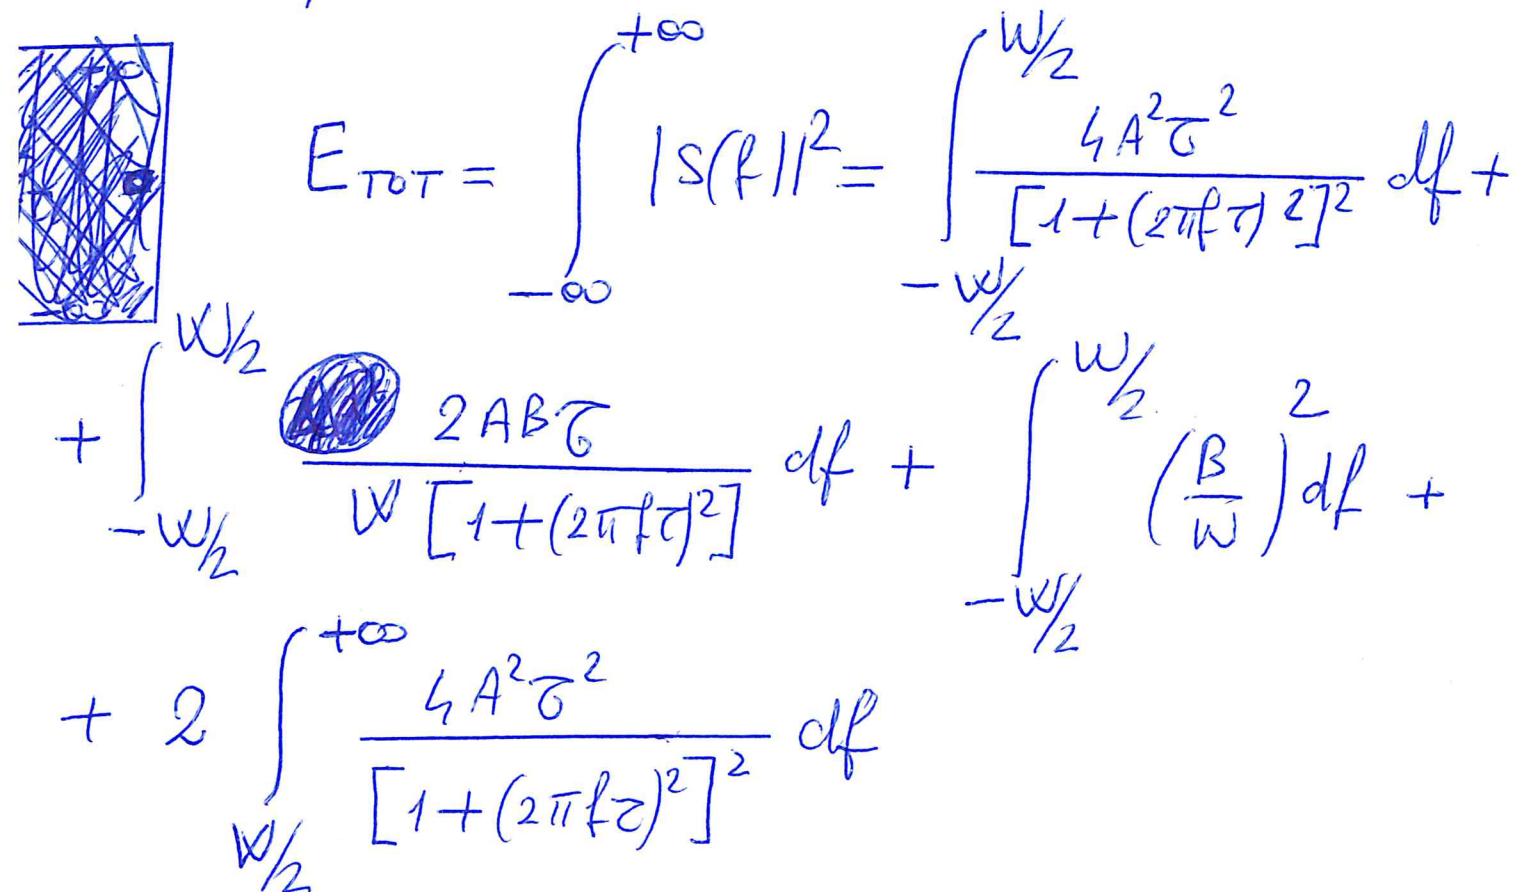 E_TOT = ∫_{-∞}^{+∞} |S(f)|^2 = ∫_{-W/2}^{W/2} \frac{4A^2τ^2}{[1+(2πfτ)^2]^2} df +
+ ∫_{-W/2}^{W/2} \frac{2ABτ}{W[1+(2πfτ)^2]} df + ∫_{-W/2}^{W/2} (\frac{B}{W})^2 df +
+ 2 ∫_{W/2}^{+∞} \frac{4A^2τ^2}{[1+(2πfτ)^2]^2} df